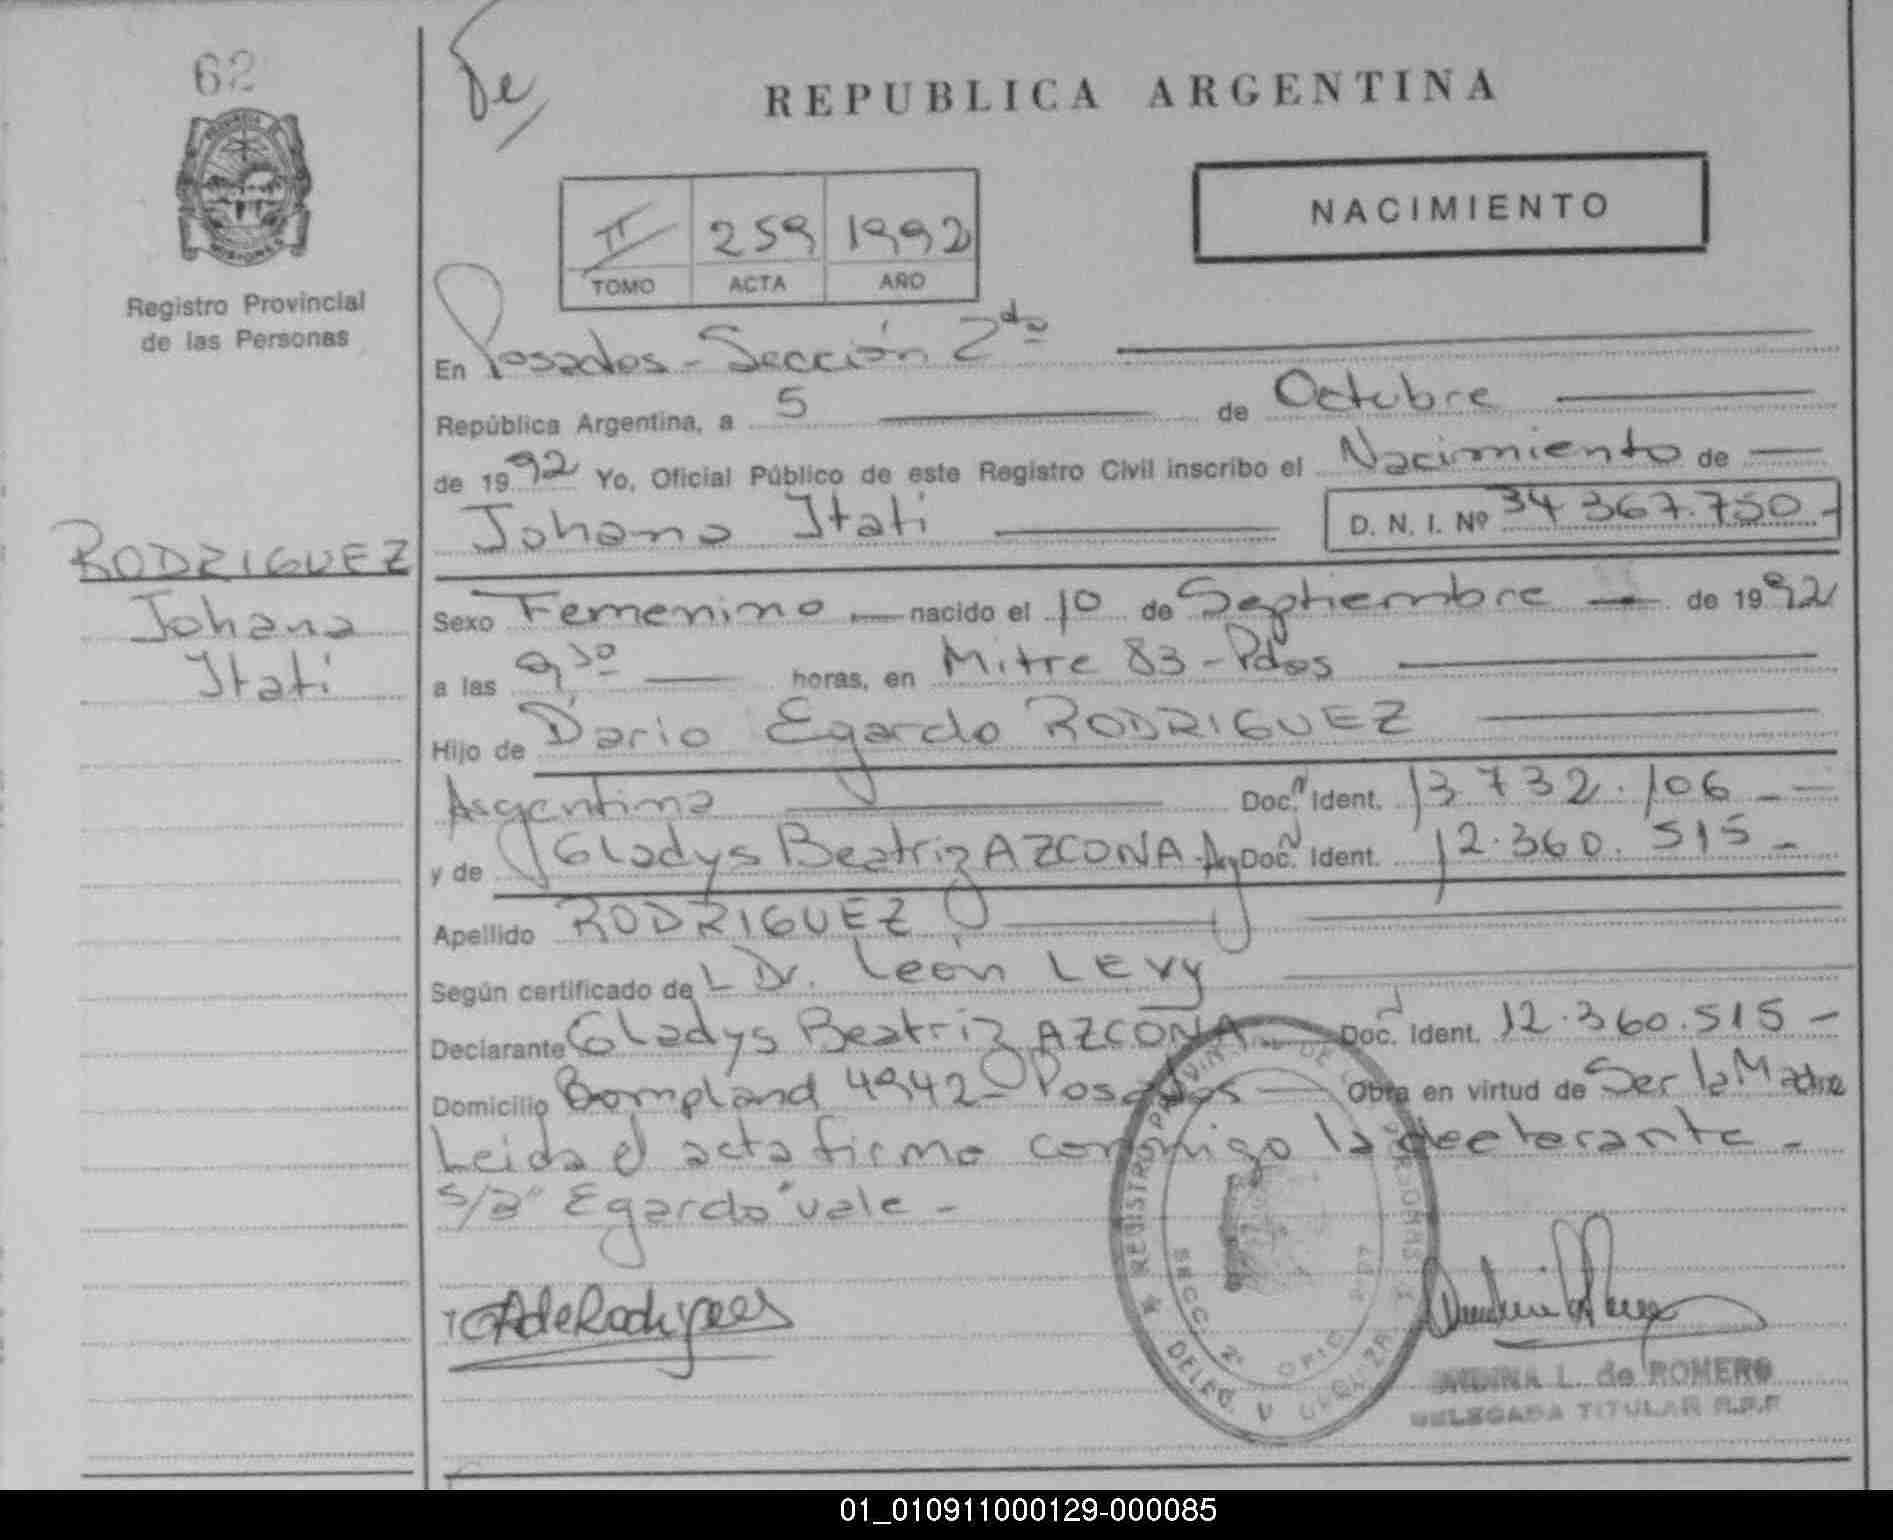 62
Registro Provincial
de las Personas
RODRIGUEZ
Johana
Itati
REPUBLICA ARGENTINA
II 259 1992
TOMO ACTA AÑO
NACIMIENTO
En Posadas - Sección 2da
República Argentina, a 5 de Octubre
de 1992 Yo, Oficial Público de este Registro Civil inscribo el Nacimiento de
Johana Itati D. N. I. Nº 34.367.750.-
Sexo Femenino nacido el 10 de Septiembre de 1992
a las 9,30 horas, en Mitre 83 - Pdas
Hijo de Dario Egardo RODRIGUEZ
Argentina Doc. Ident. 13.732.106
y de Gladys Beatriz AZCONA - Arg Doc. Ident. 12.360.515 -
Apellido RODRIGUEZ
Según certificado del Dr. León LEVY
Declarante Gladys Beatriz AZCONA Doc. Ident. 12.360.515 -
Domicilio Bompland 4942 - Posadas Obra en virtud de Ser la Madre
Leida el acta firma conmigo la declarante -
S/a "Egardo" vale -
REGISTRO PROVINCIAL DE LAS PERSONAS
SECC. 2ª OFIC.
DELEG. V. URQUIZA
L. de ROMERO
DELEGADA TITULAR R.P.P.
01_010911000129-000085